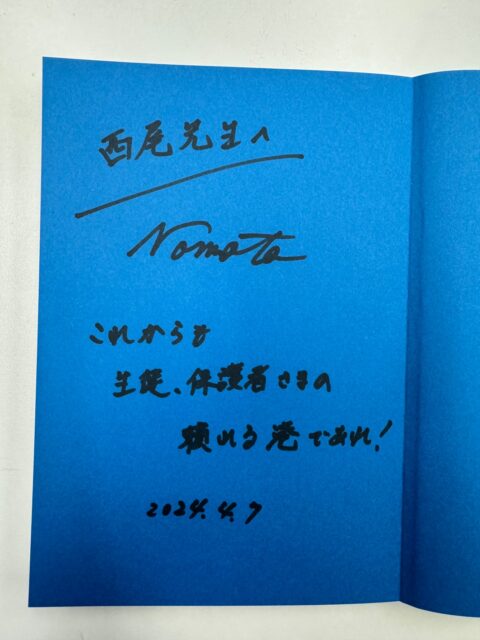 西尾先生へ
Nomata
これからも
生徒、保護者さまの
頼れる港であれ!
2024.4.7